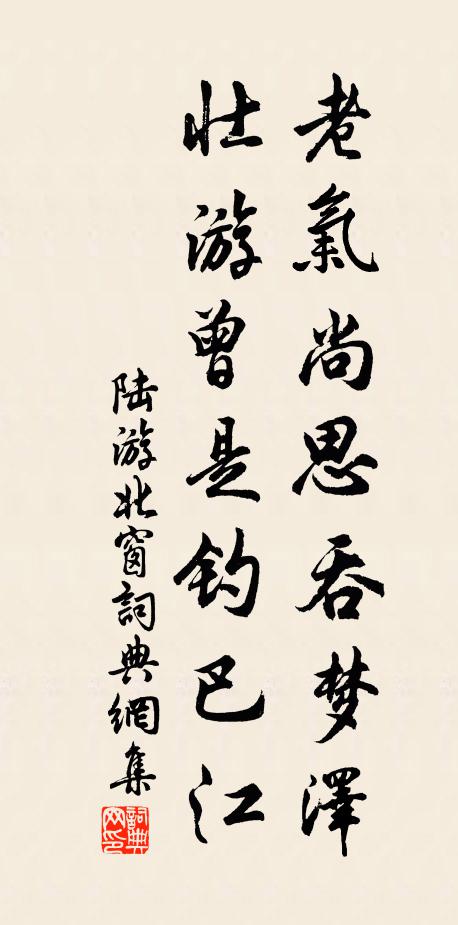 老氣尚思吞梦澤
壮游曾是钓巴江
陆游北窗詞典網集
詞典网印